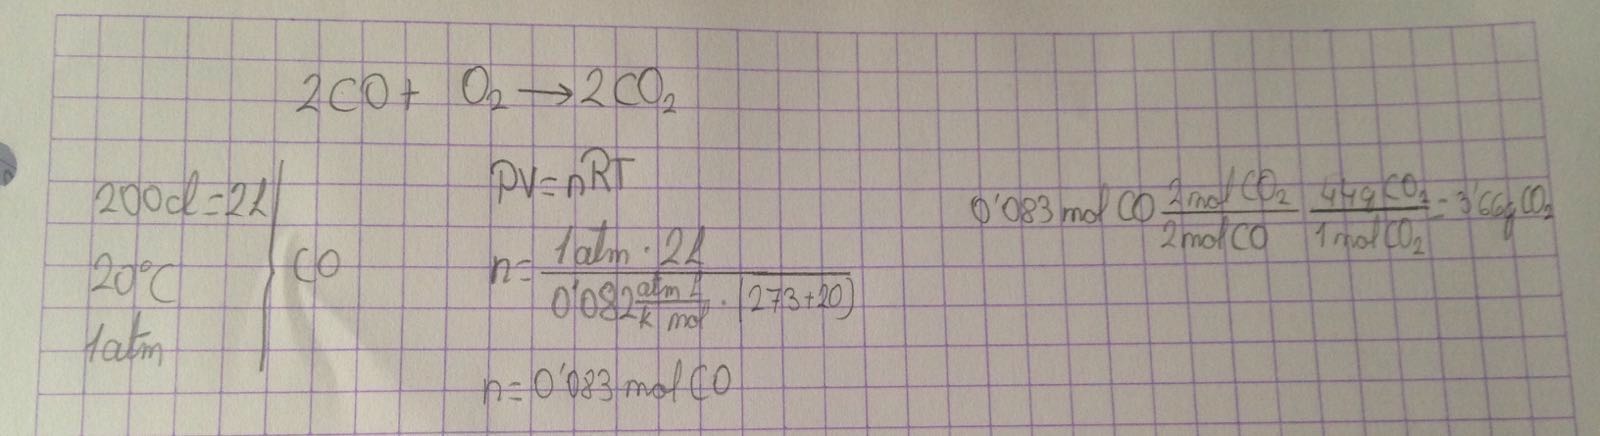 2CO + O₂ → 2CO₂
200cl = 2L
20°C
1atm
CO
PV = nRT
n = 1atm · 2L / 0'082 atm L / K mol · (273+20)
n = 0'083 mol CO
0'083 mol CO 2 mol CO₂ / 2 mol CO 44g CO₂ / 1 mol CO₂ = 3'66g CO₂